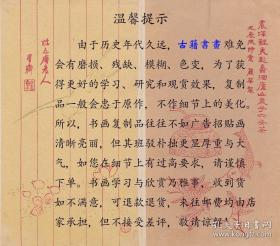 温馨提示
由于历史年代久远，古籍書畫难免
会有磨损、残缺、模糊、色变，为了获
得更好的学习、研究和观赏效果，复制
品一般会忠于原作，不作细节上的美化。
所以，书画复制品往往不如广告招贴画
清晰亮丽，但其斑驳朴拙更显厚重与大
气，如您在细节上有过高要求，请谨慎
下单。书画学习与欣赏乃雅事，收到货
如不满意，可退款退货，来往邮费均由店
家承担，但不接受差评，敬请谅解